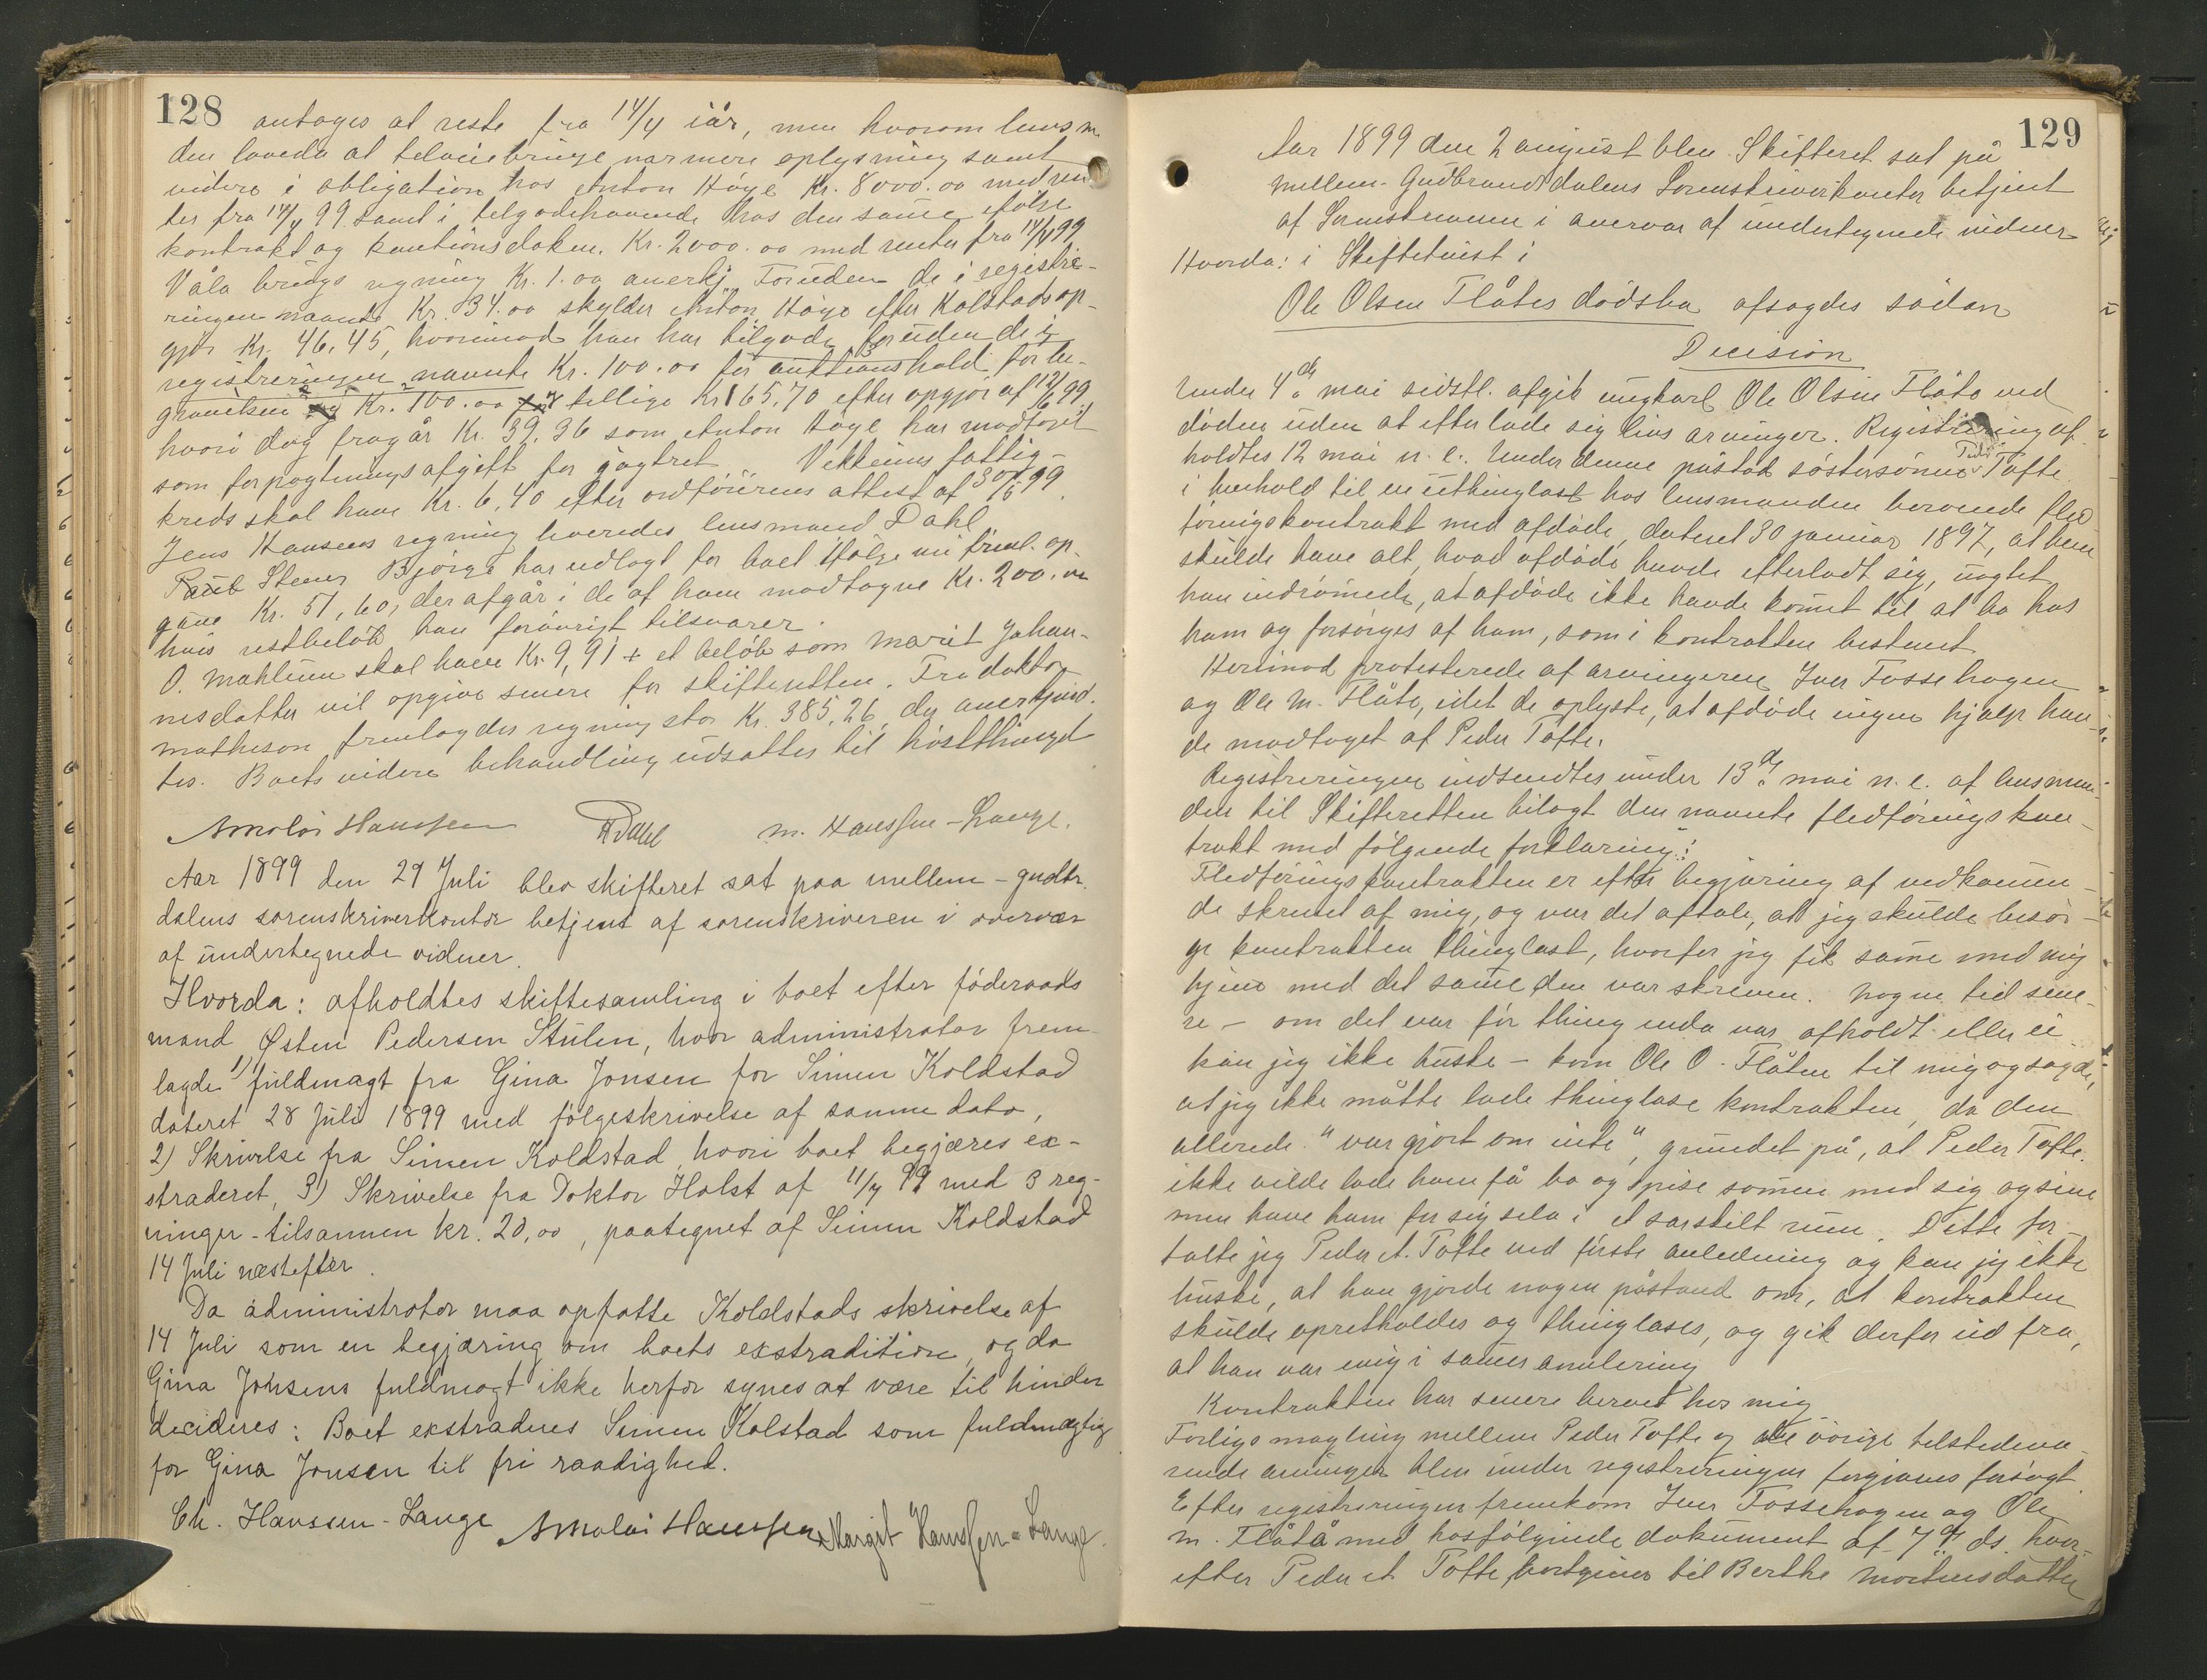 128
antages at reste fra 14/4 iår, men hvorom lensm.
den lovede at tilveiebringe nærmere oplysning samt
videre i obligation hos Anton Höye Kr. 8000.00 med ren
ter fra 14/4 99 samt i tilgodehavende hos den samme ifølge
kontrakt og kautionsdokum. Kr. 2000.00 med renter fra 14/4 99
Våla brugs regning Kr. 1.00 anerkj. Foruden de i registre-
ringen nævnte Kr. 34.00 skylder Anton Höye efter Kolstads op-
gjør Kr. 46,45, hvorimod han har tilgode foruden de i
registreringen nævnte Kr. 100.00 for auktionshold for be-
gravelsen Kr. 100.00 tillige Kr 165,70 efter opgjør af 12/6 99
hvori dog fragår Kr. 39,36 som Anton Höye har modtaget
som forpagtningsafgift for jagtret. Vekleims fattig-
kreds skal have Kr. 6,40 efter ordførerens attest af 30/6 99.
Jens Hansens regning hveredes lensmand Dahl
Paul Steuer Bjørge har udlagt for boet ifölge nu freml. op-
gave Kr. 51,60, der afgår i de af ham modtagne Kr. 200.00
hvis restbelöb han forövrigt tilsvarer.
O. Mæhlum skal have Kr. 9,91 + et belöb som Marit Johan-
nesdatter vil opgive senere for skifteretten. Fra doktor
Matheson fremlagdes regning stor Kr. 385,26, der anerkjend-
tes. Boets videre behandling udsattes til höstthinget
Amaloi Hanssen RDahl M. Hanssen-Lange.
Aar 1899 den 29 Juli blev skifteret sat paa mellem-gudbr.
dalens sorenskriverkontor betjent af sorenskriveren i overvær
af undertegnede vidner.
Hvorda: afholdtes skiftesamling i boet efter föderaads
mand Østen Pedersen Stulen, hvor administrator frem-
lagde 1) fuldmagt fra Gina Jonsen for Simen Koldstad
dateret 28 Juli 1899 med fölgeskrivelse af samme dato,
2) Skrivelse fra Simen Koldstad hvori boet begjæres ex-
straderet, 3) Skrivelse fra Doktor Holst af 11/7 99 med 3 reg-
ninger - tilsammen kr. 20,00, paategnet af Simen Koldstad
14 Juli næstefter.
Da administrator maa opfatte Koldstads skrivelse af
14 Juli som en begjæring om boets exstradition, og da
Gina Johsens fuldmagt ikke herfor synes at være til hinder
decideres: Boet ekstraderes Simen Kolstad som fuldmægtig
for Gina Jonsen til fri raadighed.
Ch. Hanssen-Lange Amaloi Hanssen Margit Hanssen-Lange.
129
Aar 1899 den 2 august blev Skifteret sat på
Mellem-Gudbrandsdalens Sorenskriverkontor betjent
af Sorenskriveren i overvær af undertegnede vidner
Hvorda: i Skiftetvist i
Ole Olsen Flåtes dödsbo afsagdes sådan
Decision
Under 4de mai sidstl. afgik ungkarl Ole Olsen Flåte ved
döden uden at efterlade sig livs arvinger. Registrering af-
holdtes 12 mai n. e. Under denne påstod söstersönnen Peder Tofte
i henhold til en uthinglæst hos lensmanden beroende fled-
föringskontrakt med afdöde, dateret 30 januar 1897, at han
skulde have alt, hvad afdöde havde efterladt sig, uagtet
han indrömmede, at afdöde ikke havde kommet til at bo hos
ham og forsörges af ham, som i kontrakten bestemt.
Herimod protesterede af arvingerne Iver Fossehagen
og Ole M. Flåte, idet de oplyste, at afdöde ingen hjælp hav-
de modtaget af Peder Tofte.
Registreringen indsendtes under 13de mai n. e. af lensman-
den til Skifteretten bilagt den nævnte fledföringskon-
trakt med fölgende forklaring:
Fledföringskontrakten er efter begjæring af vedkommen-
de skrevet af mig, og var det aftale, at jeg skulde besör-
ge kontrakten thinglæst, hvorfor jeg fik samme med mig
hjem med det samme den var skreven. Nogen tid sene-
re - om det var för thing enda var afholdt eller ei
kan jeg ikke huske - kom Ole O. Flåten til mig og sagde,
at jeg ikke måtte lade thinglæse kontrakten, da den
allerede "var gjort om inte", grundet på, at Peder Tofte
ikke vilde lade ham få bo og spise sammen med sig og sine
men have ham for sig selv i et særskilt rum. Dette for-
talte jeg Peder A. Tofte ved förste anledning og kan jeg ikke
huske, at han gjorde nogen påstand om, at kontrakten
skulde opretholdes og thinglæses, og gik derfor ud fra,
at han var enig i sammes annulering
Kontrakten har senere beroet hos mig
Forligsmægling mellem Peder Tofte og de övrige tilstedevæ-
rende arvinger blev under registreringen forgjæves forsögt
Efter registreringen fremkom Iver Fossehagen og Ole
M. Flåtå med hosfölgende dokument af 7de ds. hvor-
efter Peder A Tofte bortgiver til Berthe Mortensdatter